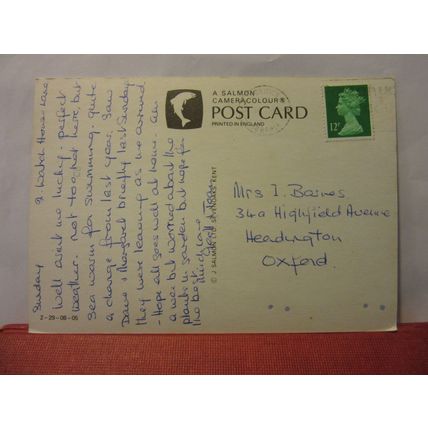 Sunday
Well aren't we lucky. perfect
weather. not too hot here, but
sea warm for swimming. quite
a change from last year. Saw
Dave & Margaret briefly last Sunday
they were leaving as we arrived
- Hope all goes well at home. am
a wee bit worried about the
plants in garden but hope for
the best.
Much love
A SALMON
CAMERACOLOUR®
POST CARD
PRINTED IN ENGLAND
12P
© J SALMON LTD. SEVENOAKS KENT
Mrs I. Barnes
34a Highfield Avenue
Headington
Oxford.
2-29-06-05